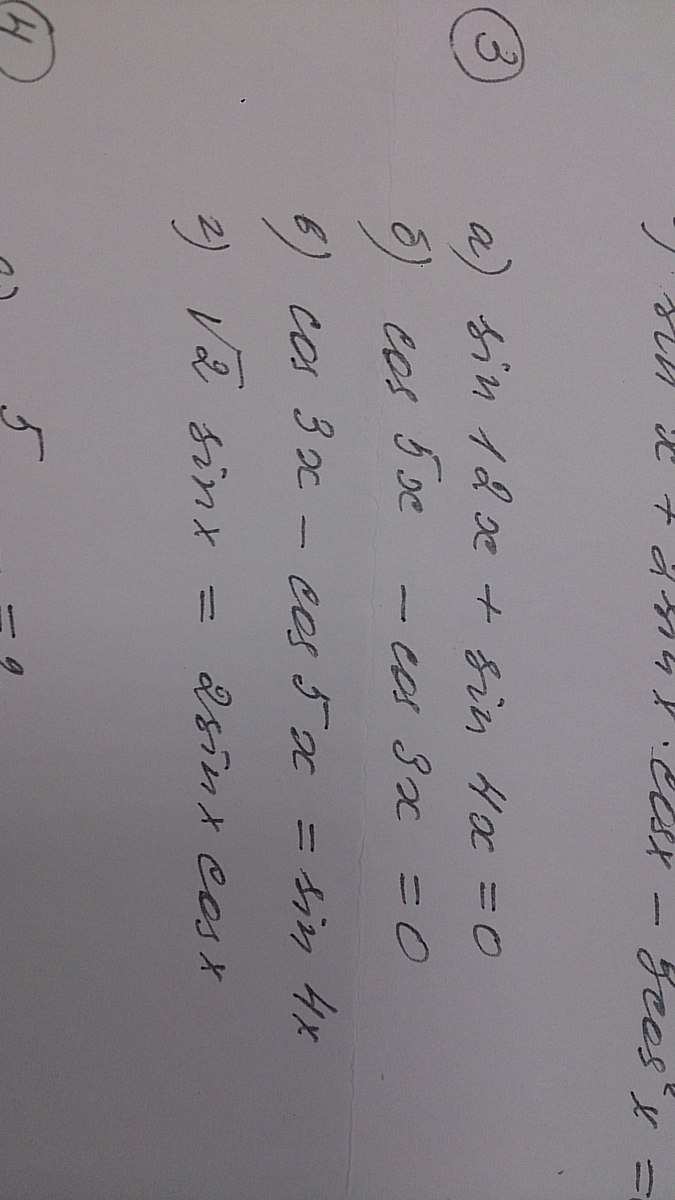 sin x + 2 sin x · cos x - 3cos² x =
③ а) sin 12x + sin 4x = 0
б) cos 5x - cos 3x = 0
в) cos 3x - cos 5x = sin 4x
г) √2 sin x = 2 sin x cos x
④ 5 =